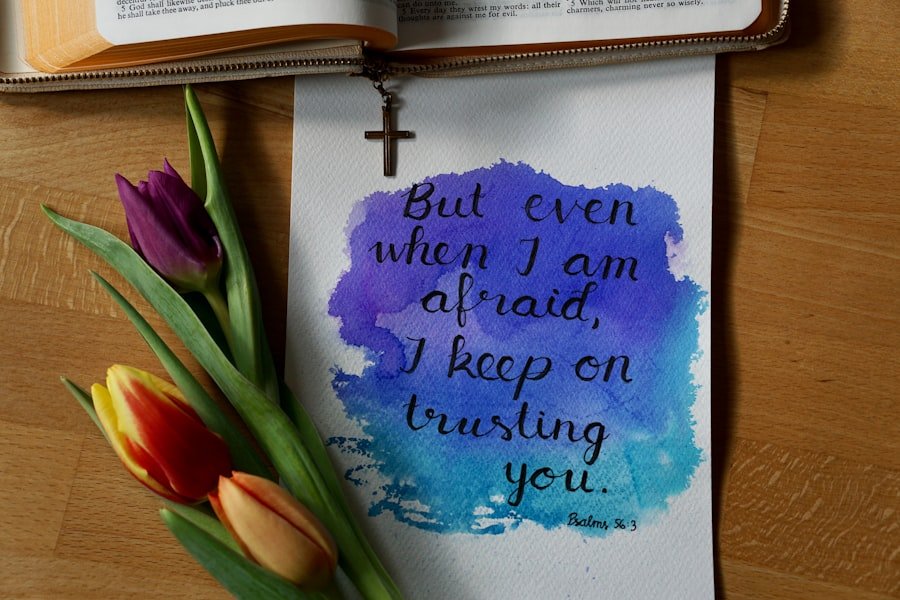 5 God shall likewise
he shall take thee away, and pluck thee out
can do unto me.
5 Every day they wrest my words: all their
thoughts are against me for evil.
5 Which will not
charmers, charming never so wisely.
But even
when I am
afraid,
I keep on
trusting
you.
Psalms 56:3